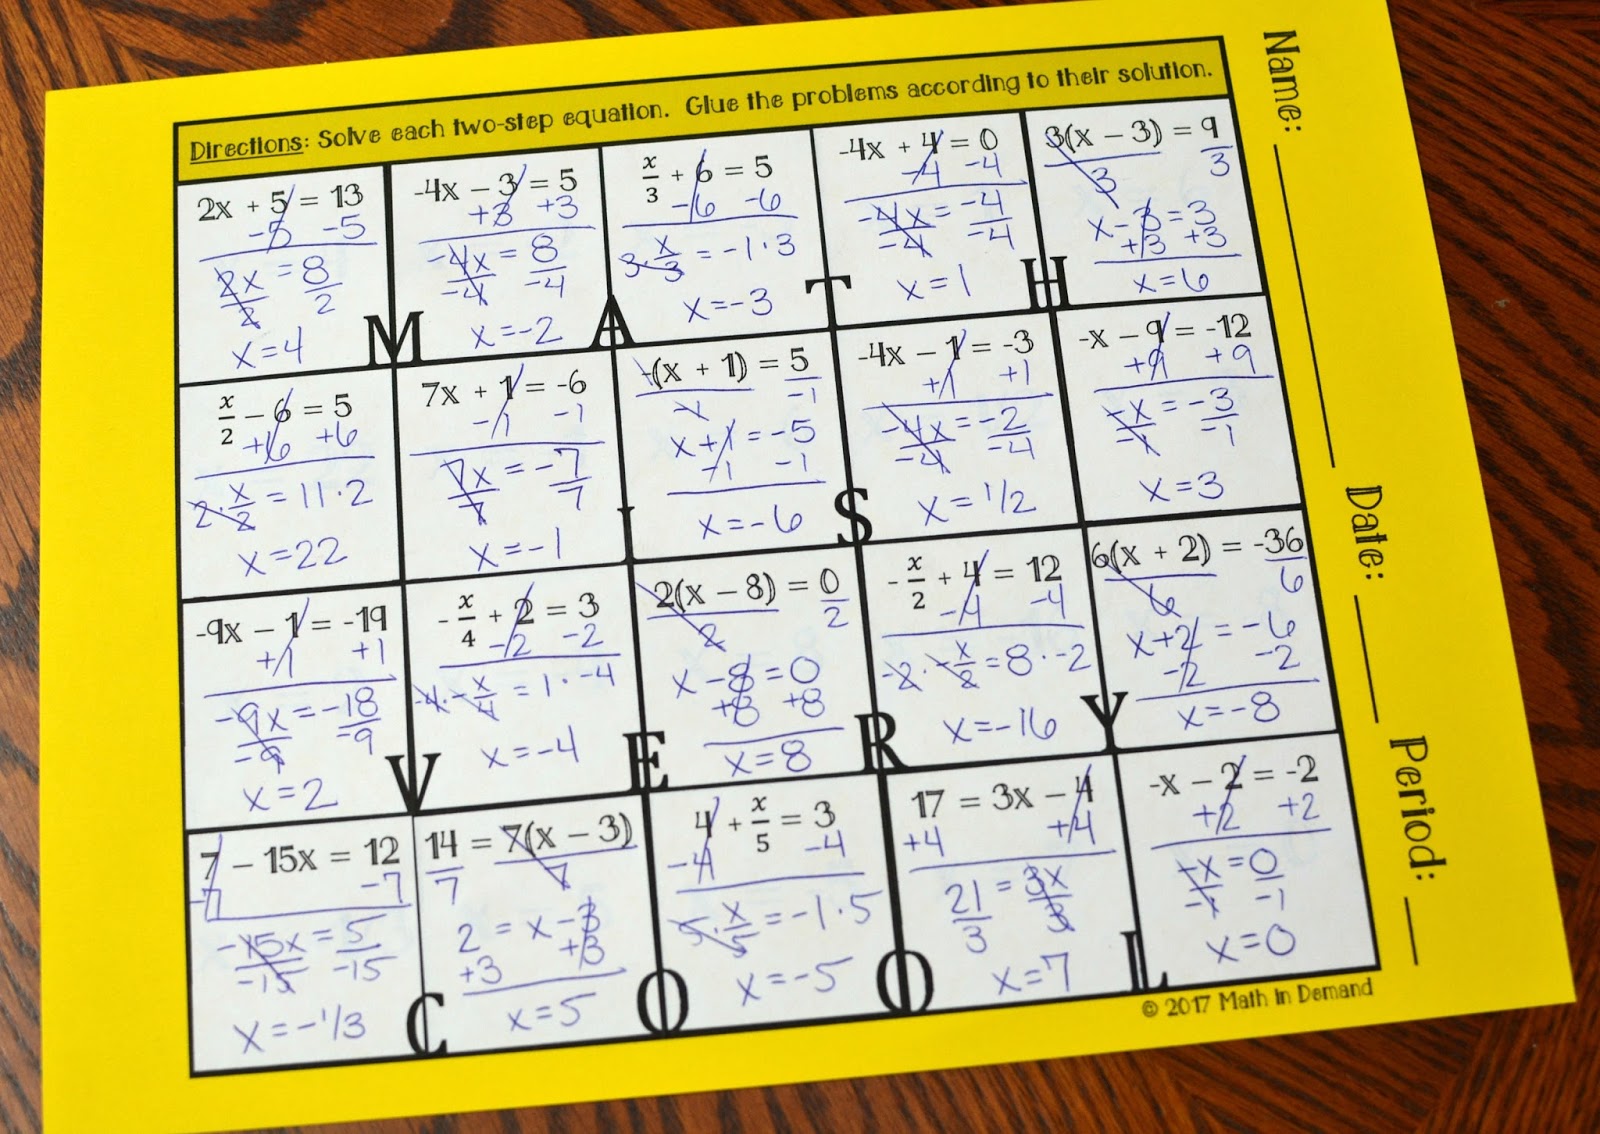 Directions: Solve each two-step equation. Glue the problems according to their solution.
2x + 5 = 13
-5 -5
2x/2 = 8/2
x=4
-4x - 3 = 5
+3 +3
-4x/-4 = 8/-4
x=-2
x/3 + 6 = 5
-6 -6
3·x/3 = -1·3
x=-3
-4x + 4 = 0
-4 -4
-4x/-4 = -4/-4
x=1
3(x - 3) = 9
3 3
x-3=3
+3 +3
x=6
M A T H
x/2 - 6 = 5
+6 +6
2·x/2 = 11·2
x=22
7x + 1 = -6
-1 -1
7x/7 = -7/7
x=-1
-(x + 1) = 5
-1 -1
x+1=-5
-1 -1
x=-6
-4x - 1 = -3
+1 +1
-4x/-4 = -2/-4
x=1/2
-x - 9 = -12
+9 +9
-x/-1 = -3/-1
x=3
I S
-9x - 1 = -19
+1 +1
-9x/-9 = -18/-9
x=2
-x/4 + 2 = 3
-2 -2
-4·-x/4 = 1·-4
x=-4
2(x - 8) = 0
2 2
x-8=0
+8 +8
x=8
-x/2 + 4 = 12
-4 -4
-2·-x/2=8·-2
x=-16
6(x + 2) = -36
6 6
x+2=-6
-2 -2
x=-8
V E R Y
7 - 15x = 12
-7 -7
-15x/-15 = 5/-15
x=-1/3
14 = 7(x - 3)
7 7
2 = x-3
+3 +3
x=5
4 + x/5 = 3
-4 -4
5·x/5 = -1·5
x=-5
17 = 3x - 4
+4 +4
21/3 = 3x/3
x=7
-x - 2 = -2
+2 +2
-x/-1 = 0/-1
x=0
C O O L
© 2017 Math in Demand
Name: Date: Period: